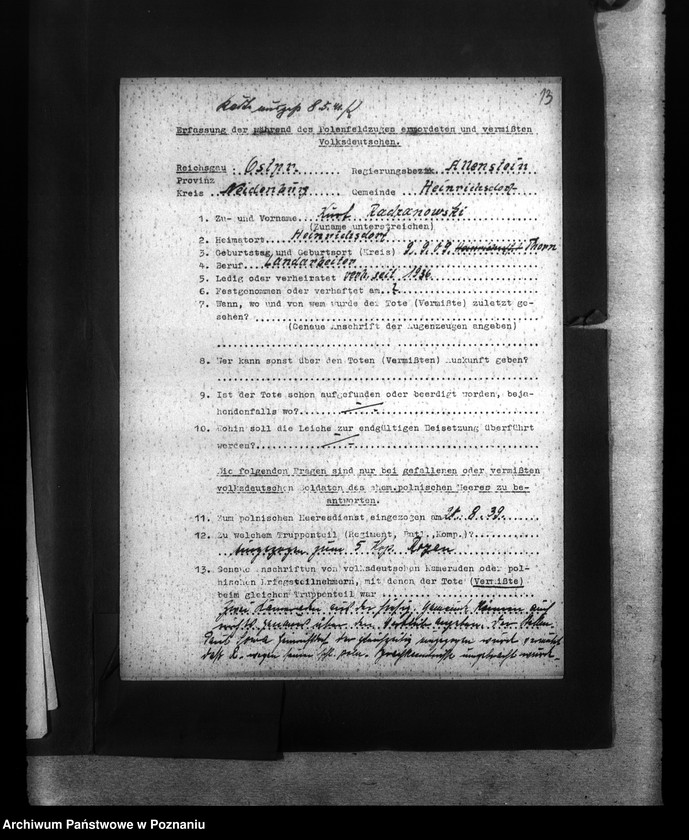 13
Erfassung der während des Polenfeldzuges ermordeten und vermißten
Volksdeutschen.
Reichsgau : Ostpr. Regierungsbezirk Allenstein
Provinz
Kreis Neidenburg Gemeinde Heinrichsdorf
1. Zu- und Vorname Kurt Radzanowski
(Zuname unterstreichen)
2. Heimatort Heinrichsdorf
3. Geburtstag und Geburtsort (Kreis) 9.9.09 Thorn
4. Beruf Landarbeiter
5. Ledig oder verheiratet verh. seit 1936
6. Festgenommen oder verhaftet am ?
7. Wann, wo und von wem wurde der Tote (Vermißte) zuletzt ge-
sehen?
(Genaue Anschrift der Augenzeugen angeben)
8. Wer kann sonst über den Toten (Vermißten) Auskunft geben?
9. Ist der Tote schon aufgefunden oder beerdigt worden, beja-
hendenfalls wo?
10. Wohin soll die Leiche zur endgültigen Beisetzung überführt
werden?
Die folgenden Fragen sind nur bei gefallenen oder vermißten
volksdeutschen Soldaten des ehem. polnischen Heeres zu be-
antworten.
11. Zum polnischen Heeresdienst eingezogen am 28.8.39.
12. Zu welchem Truppenteil (Regiment, Batl., Komp.)?
eingezogen zum 5
13. Genaue Anschriften von volksdeutschen Kameraden oder pol-
nischen Kriegsteilnehmern, mit denen der Tote (Vermißte)
beim gleichen Truppenteil war
Kameraden aus der Gemeinde können auf
nichts genaues über den Verbleib angeben. Der
der gleichzeitig eingezogen wurde
daß R. wegen seiner poln. umgebracht wurde.
Archiwum Państwowe w Poznaniu